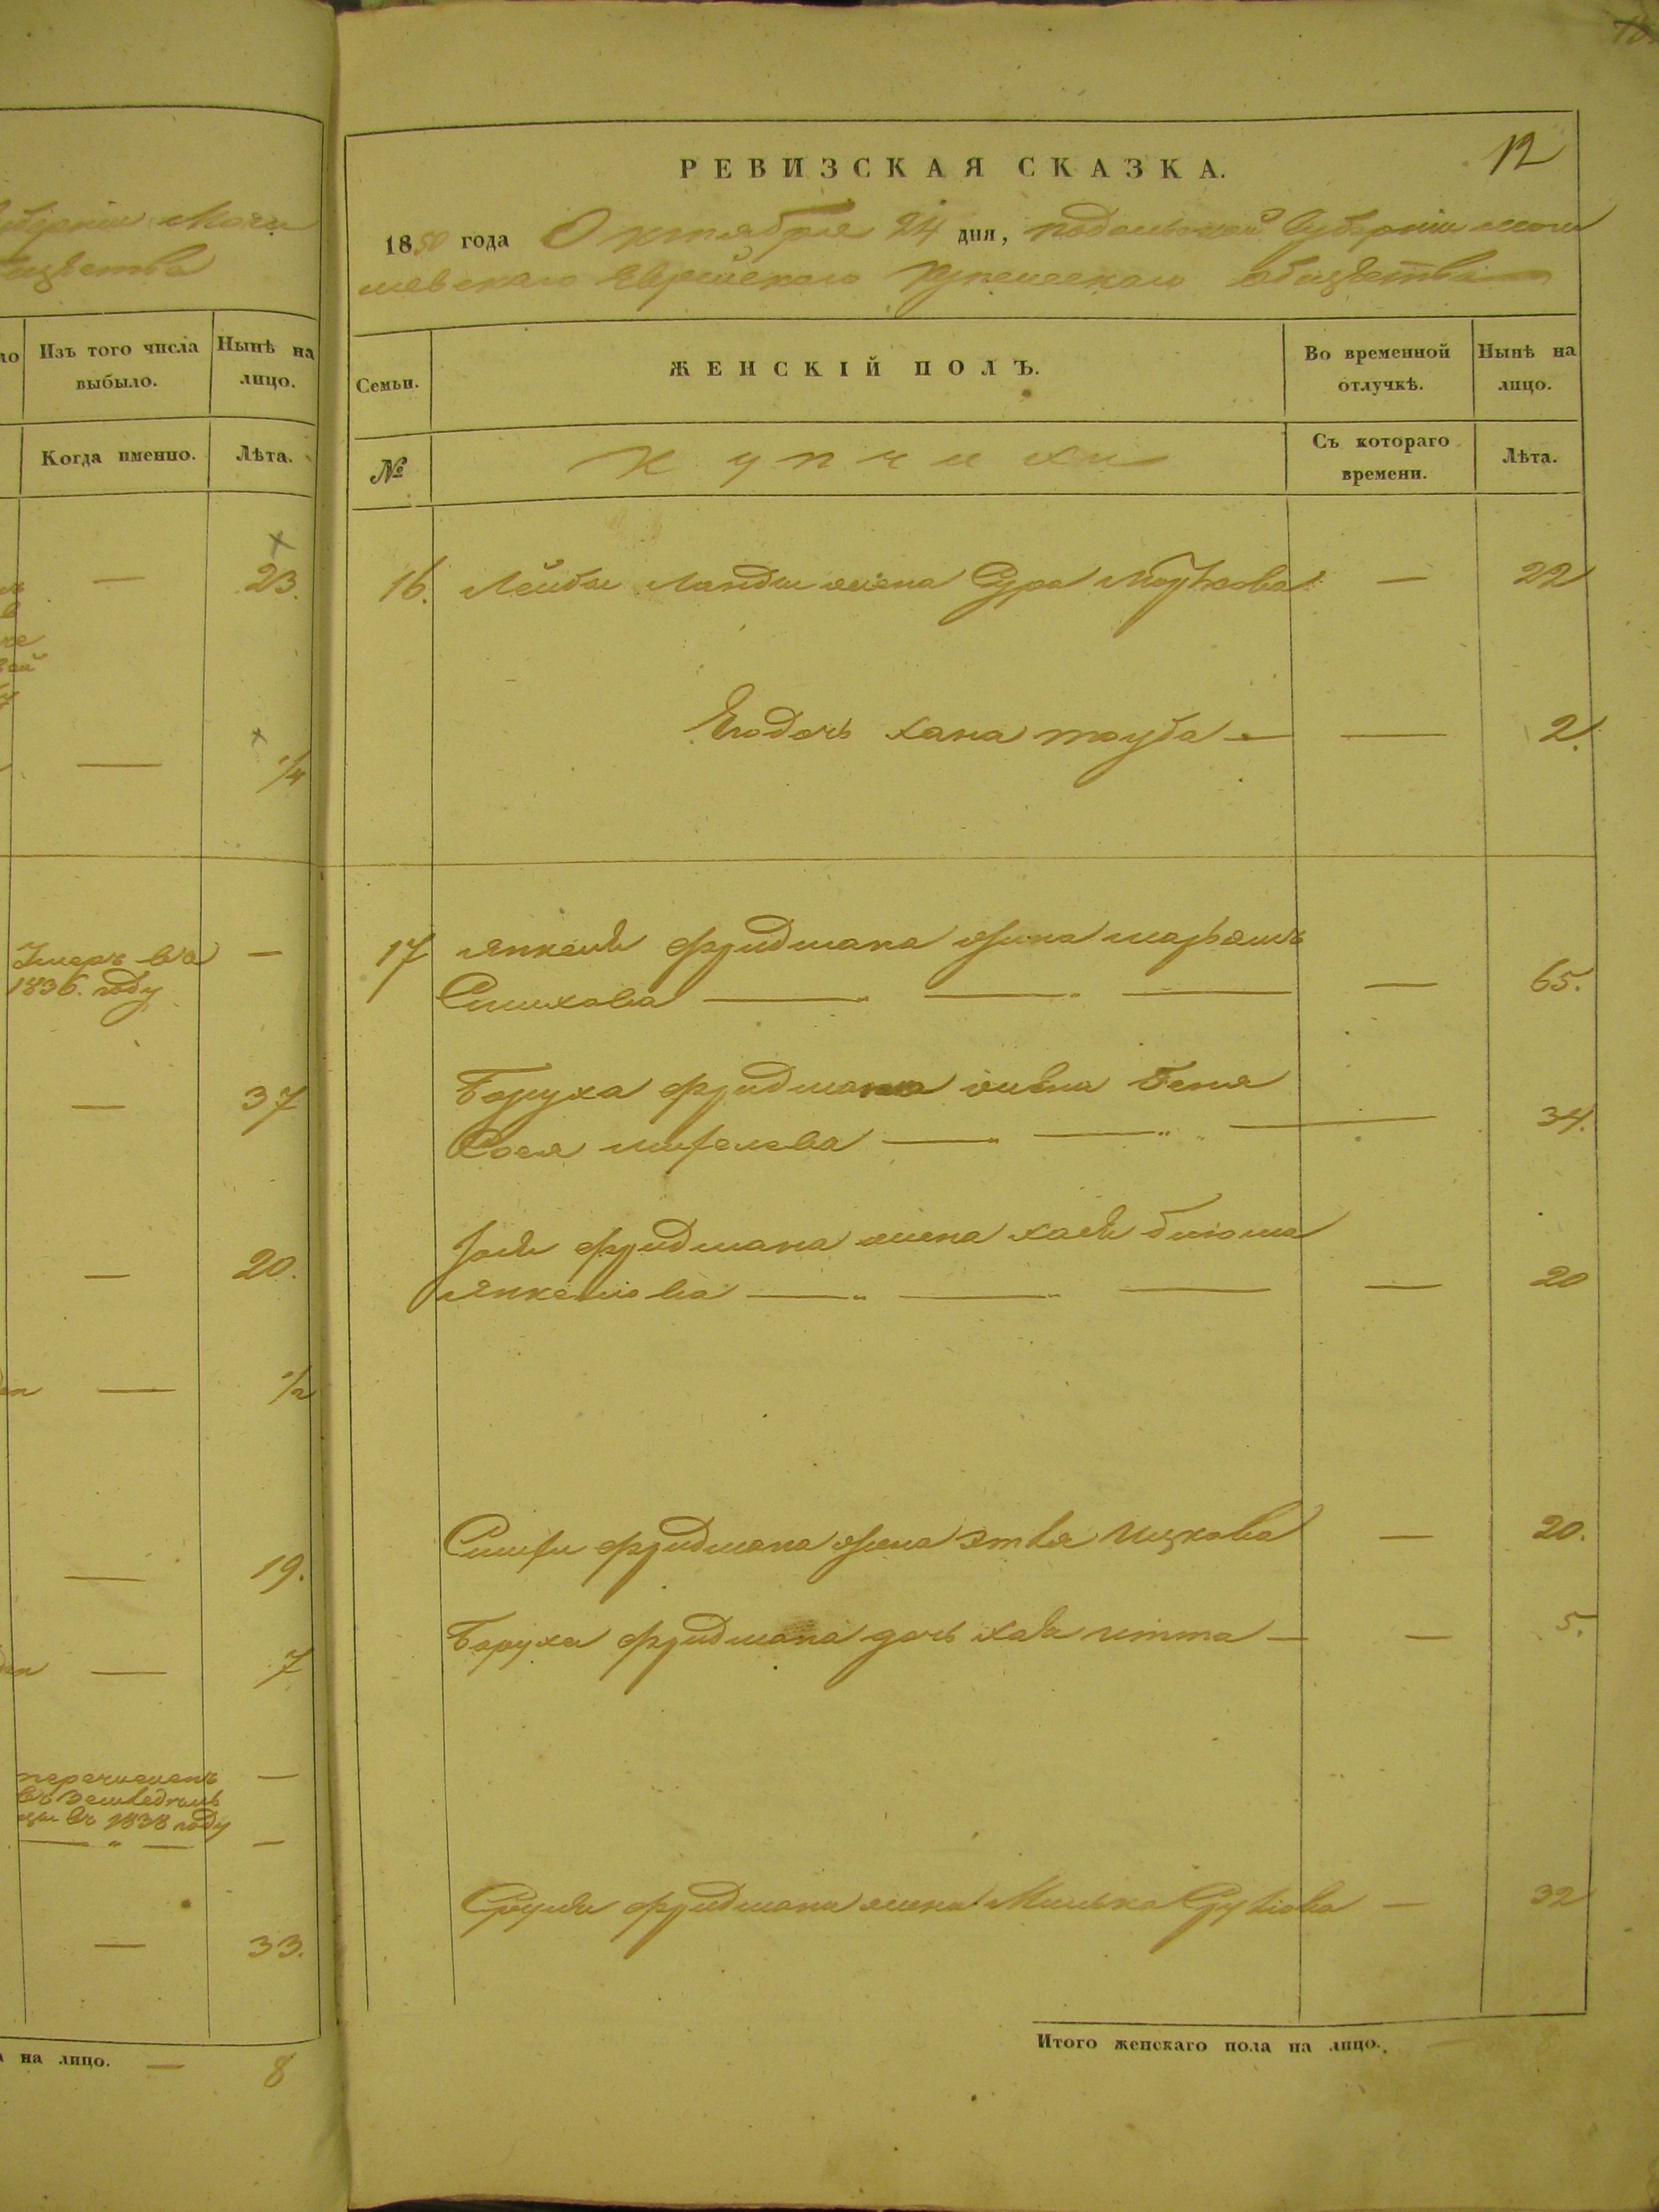 12
РЕВИЗСКАЯ СКАЗКА.
1850 года Октября 24 дня, подольской Губернии моги
левскаго Еврейскаго Купеческаго общества
Семьи.
ЖЕНСКІЙ ПОЛЪ.
Во временной отлучкѣ.
Нынѣ на лицо.
№
Купчихи
Съ котораго времени.
Лѣта.
16. Лейбы Ланды жена Сура Мошкова — 22
Его дочь хана тауба — — 2.
17 Янкеля фридмана жена марьямъ
Симхова — — 65.
Боруха фридмана жена Бена
Сося — 34.
фридмана жена хая блюма
Янкелева — — 20
фридмана жена этля Ицкова — 20.
Боруха фридмана дочь хая итта — — 5.
Сруля фридмана жена Милька — 32
Итого женскаго пола на лицо.
общества
Изъ того числа выбыло.
Нынѣ на лицо.
Когда именно.
Лѣта.
— 23.
— 1/4
Умеръ въ —
1836. году
— 37
— 20.
— 1/2
— 19.
— 7
перечисленъ —
въ земледѣль
цы въ 1838 году
— " — —
— 33.
на лицо. — 8